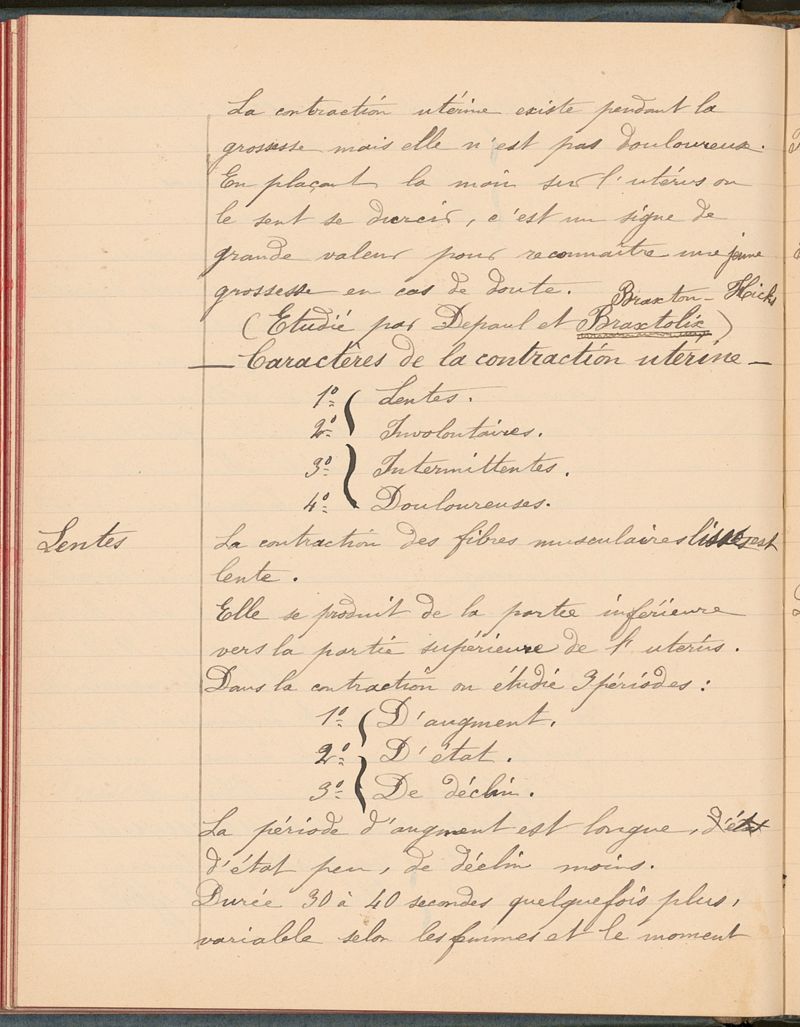 La contraction utérine existe pendant la
grossesse mais elle n'est pas douloureuse.
En plaçant la main sur l'utérus on
le sent se durcir, c'est un signe de
grande valeur pour reconnaître une jeune
grossesse en cas de doute.
Braxton-Hicks
(Etudié par Depaul et Braxtolix)
— Caractères de la contraction utérine —
1º Lentes.
2º Involontaires.
3º Intermittentes.
4º Douloureuses.
Lentes
La contraction des fibres musculaires lisses est
lente.
Elle se produit de la partie inférieure
vers la partie supérieure de l'uterus.
Dans la contraction on étudie 3 périodes :
1º D'augment.
2º D'état.
3º De déclin.
La période d'augment est longue, d'état
d'état peu, de déclin moins.
Durée 30 à 40 secondes quelquefois plus,
variable selon les femmes et le moment